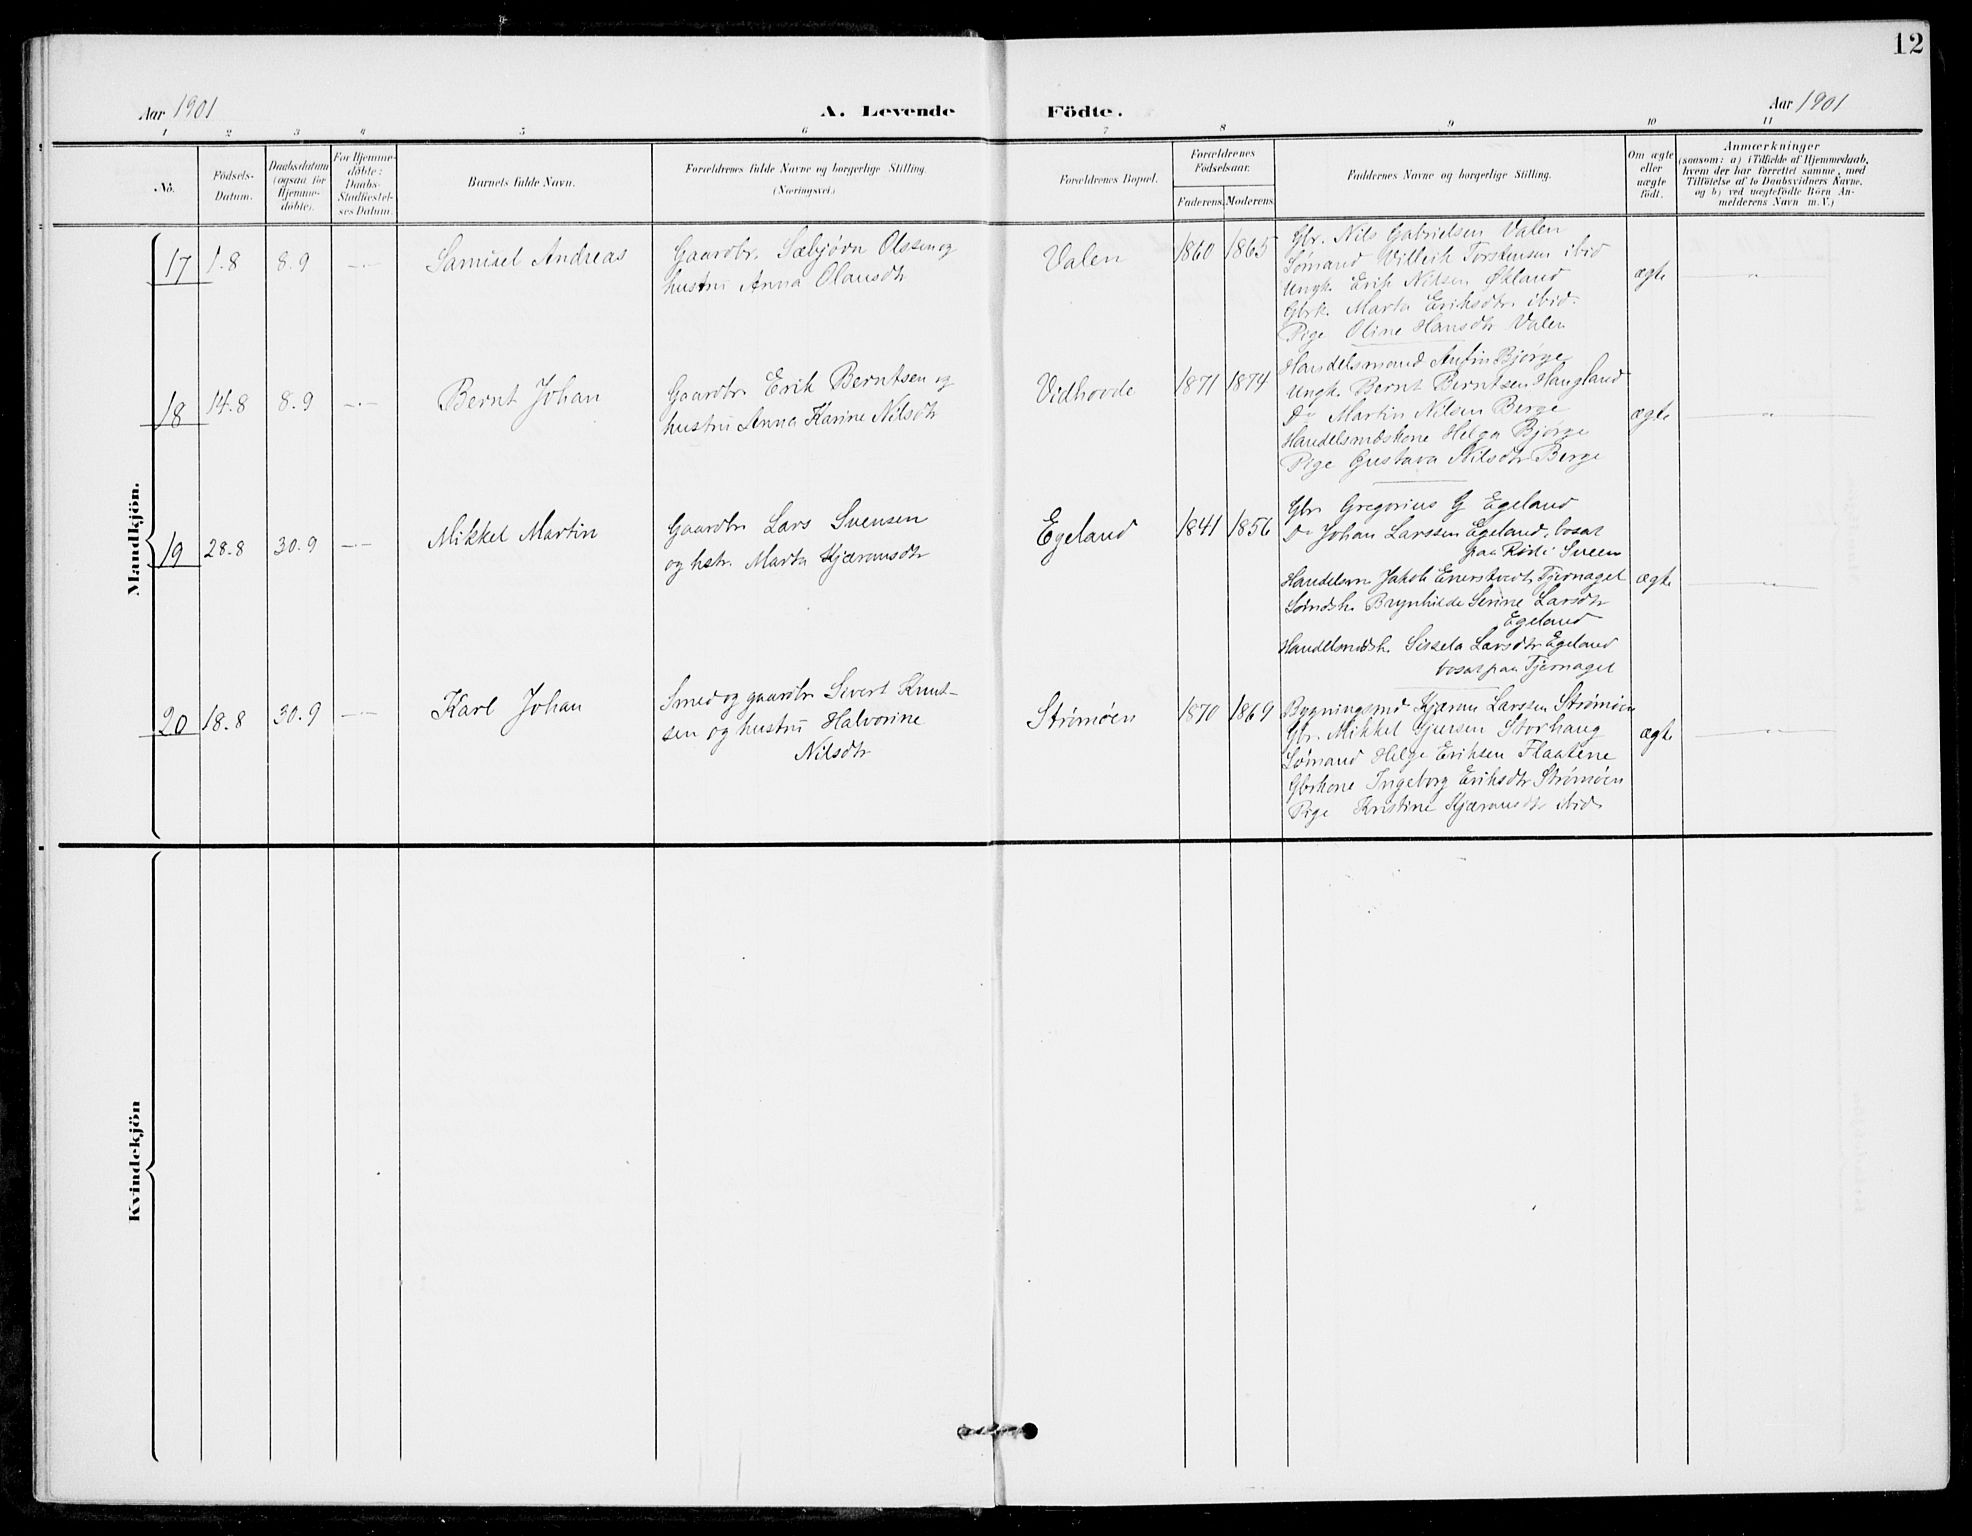 12
Aar 1901
A. Levende Födte.
Aar 1901
1 2 3 4 5 6 7 8 9 10 11
No.
Födsels-
Datum.
Daabsdatum
(ogsaa for
Hjemme-
döbte).
For Hjemme-
döbte:
Daabs-
Stadfæstel-
ses Datum.
Barnets fulde Navn.
Forældrenes fulde Navne og borgerlige Stilling
(Næringsvei.)
Forældrenes Bopæl.
Forældrenes
Födselsaar.
Faderens. Moderens.
Faddernes Navne og borgerlige Stilling.
Om ægte
eller
uægte
födt.
Anmærkninger
(saasom: a) i Tilfælde af Hjemmedaab,
hvem der har forrettet samme, med
Tilföielse af to Daabsvidners Navne,
og b) ved uægtefödte Börn An-
melderens Navn m. V.)
Mandkjön.
17 1.8 8.9 -·-
Samuel Andreas
Gaardbr. Sæbjørn Olssen og
hustru Anna Olausdtr
Valen
1860 1865
Gbr. Nils Gabrielsen Valen
Sømand Villeik Torstensen ibid
Ungk. Erik Nilsen Økland
Gbrk. Marta Eriksdtr ibid.
Pige Oline Hansdtr Valen
ægte
"
18 14.8 8.9 -·-
Bernt Johan
Gaardbr Erik Berntsen og
hustru Anna Karine Nilsdtr
Vidhovde
1871 1874
Handelsmand Anfin Bjørge
Ungk. Bernt Berntsen Haugland
Do Martin Nilsen Berge
Handelsmdskone Helga Bjørge
Pige Gustava Nilsdtr Berge
ægte
"
19 28.8 30.9 -·-
Mikkel Martin
Gaardbr Lars Svensen
og hstr. Marta Kjæransdtr
Egeland
1841 1856
Gbr Gregorius G Egeland
Do Johan Larssen Egeland, bosat
paa Sveen
Handelsm Jakob Enerstvedt Tjernaget
Sømdsk. Brynhilde Serine Larsdtr
Egeland
Handelsmdsk. Sissela Larsdtr Egeland
bosat paa Tjernaget
ægte
"
20 18.8 30.9 -·-
Karl Johan
Smed og gaardbr Sivert Knut-
sen og hustru Halvorine
Nilsdtr
Strømøen
1870 1869
Bygningsmd Kjæran Larssen Strømøen
Gbr. Mikkel Gjersen Storhaug
Sømand Helge Eriksen Flaatene
Gbrkone Ingeborg Eriksdtr Strømøen
Pige Kristine Kjæransdtr ibid
ægte
"
Kvindekjön